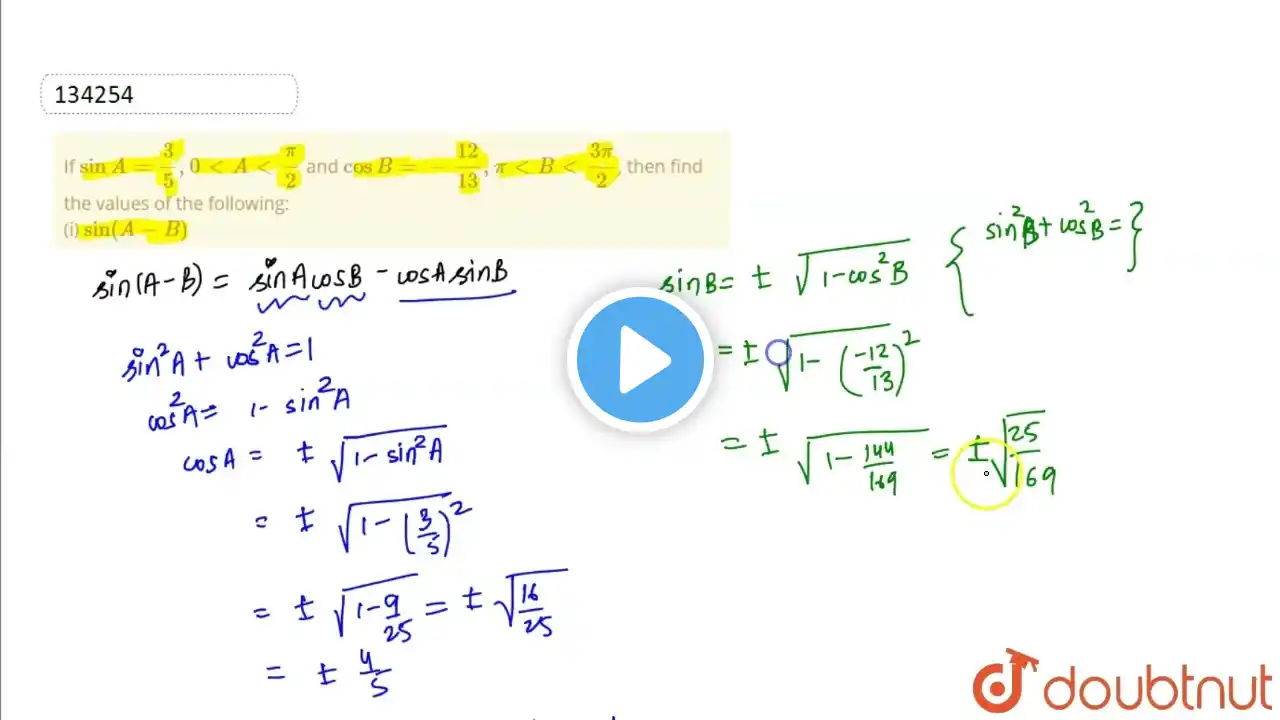 134254
If sin A = 3/5, 0 < A < π/2 and cos B = −12/13, π < B < 3π/2, then find
the values of the following:
(i) sin(A − B)
sin(A-B) = sinA cosB - cosA sinB
sin²A + cos²A = 1
cos²A = 1 - sin²A
cosA = ± √(1 - sin²A)
= ± √(1 - (3/5)²)
= ± √(1 - 9/25) = ± √(16/25)
= ± 4/5
sinB = ± √(1 - cos²B) { sin²B + cos²B = }
= ± √(1 - (-12/13)²)
= ± √(1 - 144/169) = ± √(25/169)
doubtnut